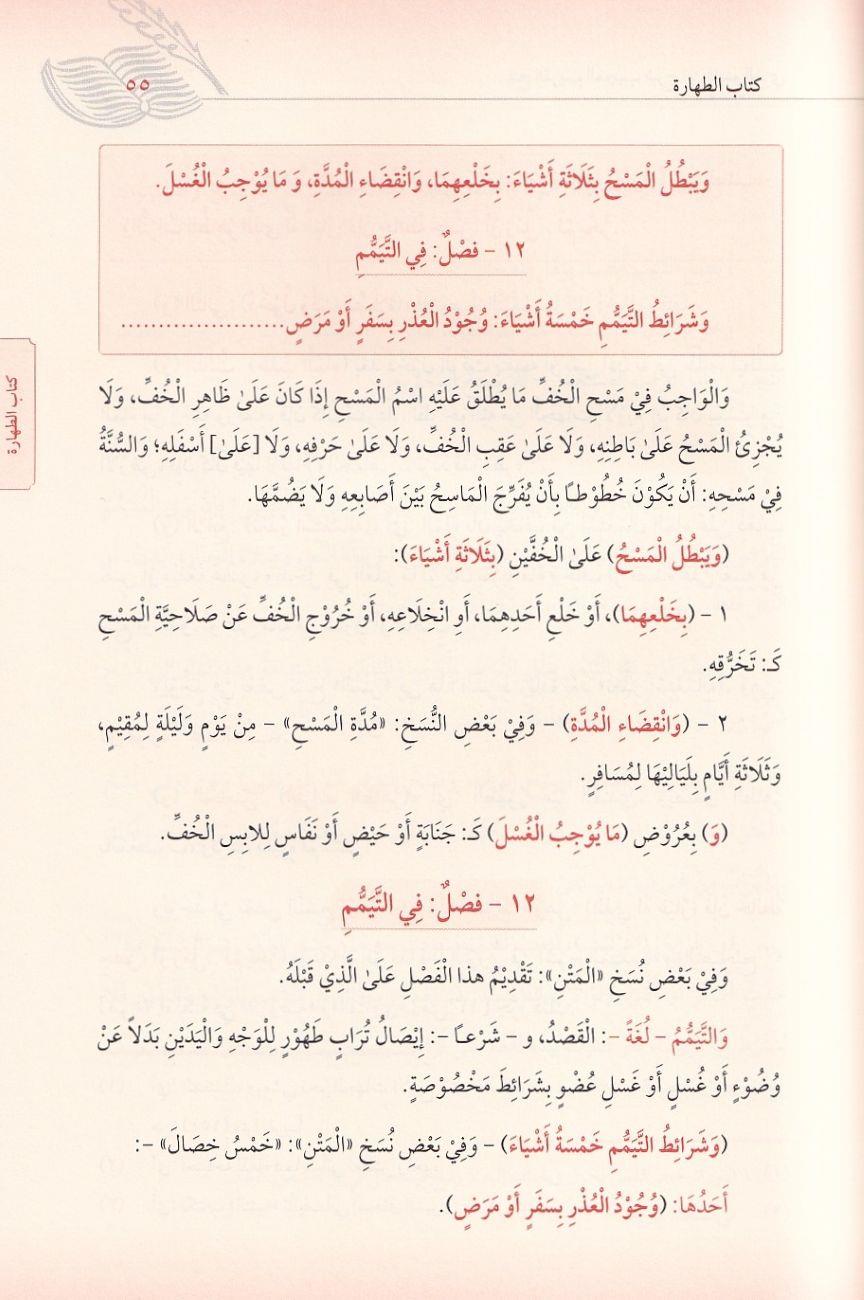 كتاب الطهارة
٥٥
وَيَبْطُلُ الْمَسْحُ بِثَلَاثَةِ أَشْيَاءَ: بِخَلْعِهِمَا، وَانْقِضَاءِ الْمُدَّةِ، وَ مَا يُوْجِبُ الْغُسْلَ.
١٢ – فصْلٌ: فِي التَّيَمُّمِ
وَشَرَائِطُ التَّيَمُّمِ خَمْسَةُ أَشْيَاءَ: وُجُوْدُ الْعُذْرِ بِسَفَرٍ أَوْ مَرَضٍ......................
وَالْوَاجِبُ فِيْ مَسْحِ الْخُفِّ مَا يُطْلَقُ عَلَيْهِ اسْمُ الْمَسْحِ إِذَا كَانَ عَلَىٰ ظَاهِرِ الْخُفِّ، وَلَا
يُجْزِئُ الْمَسْحُ عَلَىٰ بَاطِنِهِ، وَلَا عَلَىٰ عَقِبِ الْخُفِّ، وَلَا عَلَىٰ حَرْفِهِ، وَلَا [عَلَىٰ] أَسْفَلِهِ؛ وَالسُّنَّةُ
فِيْ مَسْحِهِ: أَنْ يَكُوْنَ خُطُوْطًا بِأَنْ يُفَرِّجَ الْمَاسِحُ بَيْنَ أَصَابِعِهِ وَلَا يَضُمَّهَا.
(وَيَبْطُلُ الْمَسْحُ) عَلَىٰ الْخُفَّيْنِ (بِثَلَاثَةِ أَشْيَاءَ):
١ – (بِخَلْعِهِمَا)، أَوْ خَلْعِ أَحَدِهِمَا، أَوِ انْخِلَاعِهِ، أَوْ خُرُوْجِ الْخُفِّ عَنْ صَلَاحِيَّةِ الْمَسْحِ
كَـ: تَخَرُّقِهِ.
٢ – (وَانْقِضَاءِ الْمُدَّةِ) – وَفِيْ بَعْضِ النُّسَخِ: «مُدَّةِ الْمَسْحِ» – مِنْ يَوْمٍ وَلَيْلَةٍ لِمُقِيْمٍ،
وَثَلَاثَةِ أَيَّامٍ بِلَيَالِيْهَا لِمُسَافِرٍ.
(وَ) بِعُرُوْضِ (مَا يُوْجِبُ الْغُسْلَ) كَـ: جَنَابَةٍ أَوْ حَيْضٍ أَوْ نَفَاسٍ لِلابِسِ الْخُفِّ.
١٢ – فصْلٌ: فِي التَّيَمُّمِ
وَفِيْ بَعْضِ نُسَخِ «الْمَتْنِ»: تَقْدِيْمُ هذا الْفَصْلِ عَلَىٰ الَّذِيْ قَبْلَهُ.
وَالتَّيَمُّمُ – لُغَةً –: الْقَصْدُ، و – شَرْعًا –: إِيْصَالُ تُرَابٍ طَهُوْرٍ لِلْوَجْهِ وَالْيَدَيْنِ بَدَلاً عَنْ
وُضُوْءٍ أَوْ غُسْلٍ أَوْ غَسْلِ عُضْوٍ بِشَرَائِطَ مَخْصُوْصَةٍ.
(وَشَرَائِطُ التَّيَمُّمِ خَمْسَةُ أَشْيَاءَ) – وَفِيْ بَعْضِ نُسَخِ «الْمَتْنِ»: «خَمْسُ خِصَالَ» –:
أَحَدُهَا: (وُجُوْدُ الْعُذْرِ بِسَفَرٍ أَوْ مَرَضٍ).
كتاب الطهارة